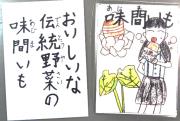 おいしいな
伝統野菜の
味間いも
味間も